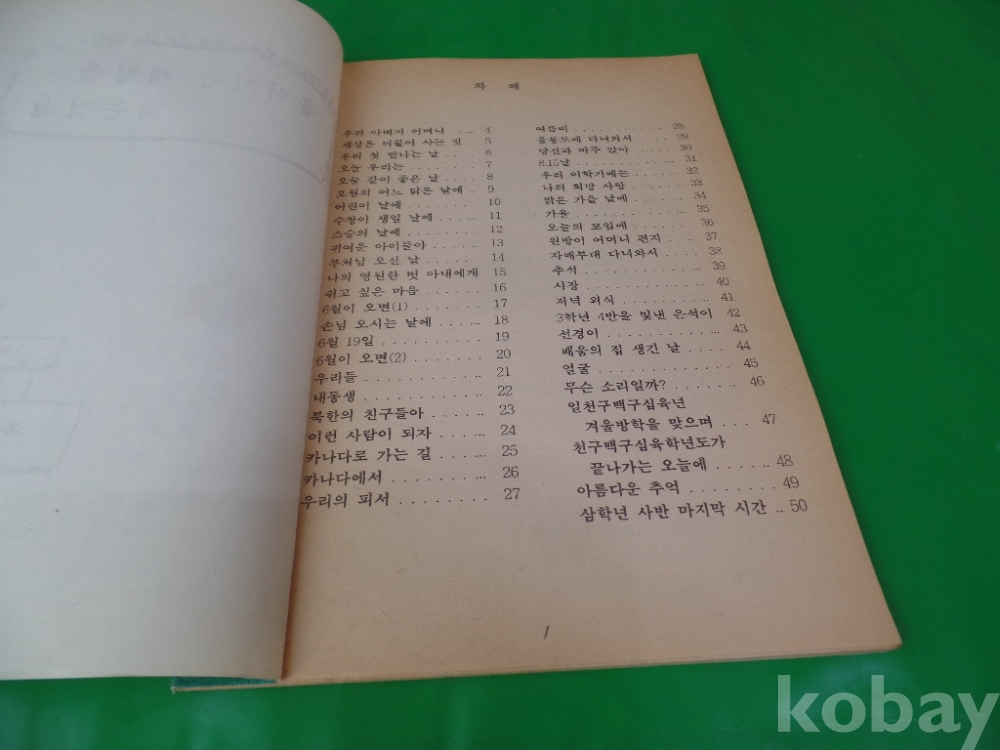 차 례
우리 아버지 어머니 .... 4
세상은 더불어 사는 것 . 5
우리 첫 만나는 날 .... 6
오늘 우리는 .......... 7
오늘 같이 좋은 날 .... 8
오월의 어느 맑은 날에 . 9
어린이 날에 .......... 10
수창이 생일 날에 ..... 11
스승의 날에 .......... 12
귀여운 아이들아 ...... 13
부처님 오신 날 ....... 14
나의 영원한 벗 아내에게 15
쉬고 싶은 마음 ....... 16
6월이 오면(1) ........ 17
손님 오시는 날에 ..... 18
6월 19일 ............. 19
6월이 오면(2) ........ 20
우리들 ............... 21
내동생 ............... 22
북한의 친구들아 ...... 23
이런 사람이 되자 ...... 24
카나다로 가는 길 ..... 25
카나다에서 ........... 26
우리의 피서 .......... 27
여름비 ............... 28
울릉도에 다녀와서 .... 29
당신과 마주 앉아 ..... 30
8.15날 ............... 31
우리 이학기에는 ...... 32
나의 희망 사항 ....... 33
밝은 가을 날에 ....... 34
가을 ................. 35
오늘의 모임에 ........ 36
원방이 어머니 편지 ... 37
자매부대 다녀와서 .... 38
추석 ................. 39
시장 ................. 40
저녁 외식 ............ 41
3학년 4반을 빛낸 은석이 42
선경이 ............... 43
배움의 집 생긴 날 .... 44
얼굴 ................. 45
무슨 소리일까? ....... 46
일천구백구십육년
겨울방학을 맞으며 ... 47
천구백구십육학년도가
끝나가는 오늘에 ...... 48
아름다운 추억 ........ 49
삼학년 사반 마지막 시간 .. 50
1
kobay